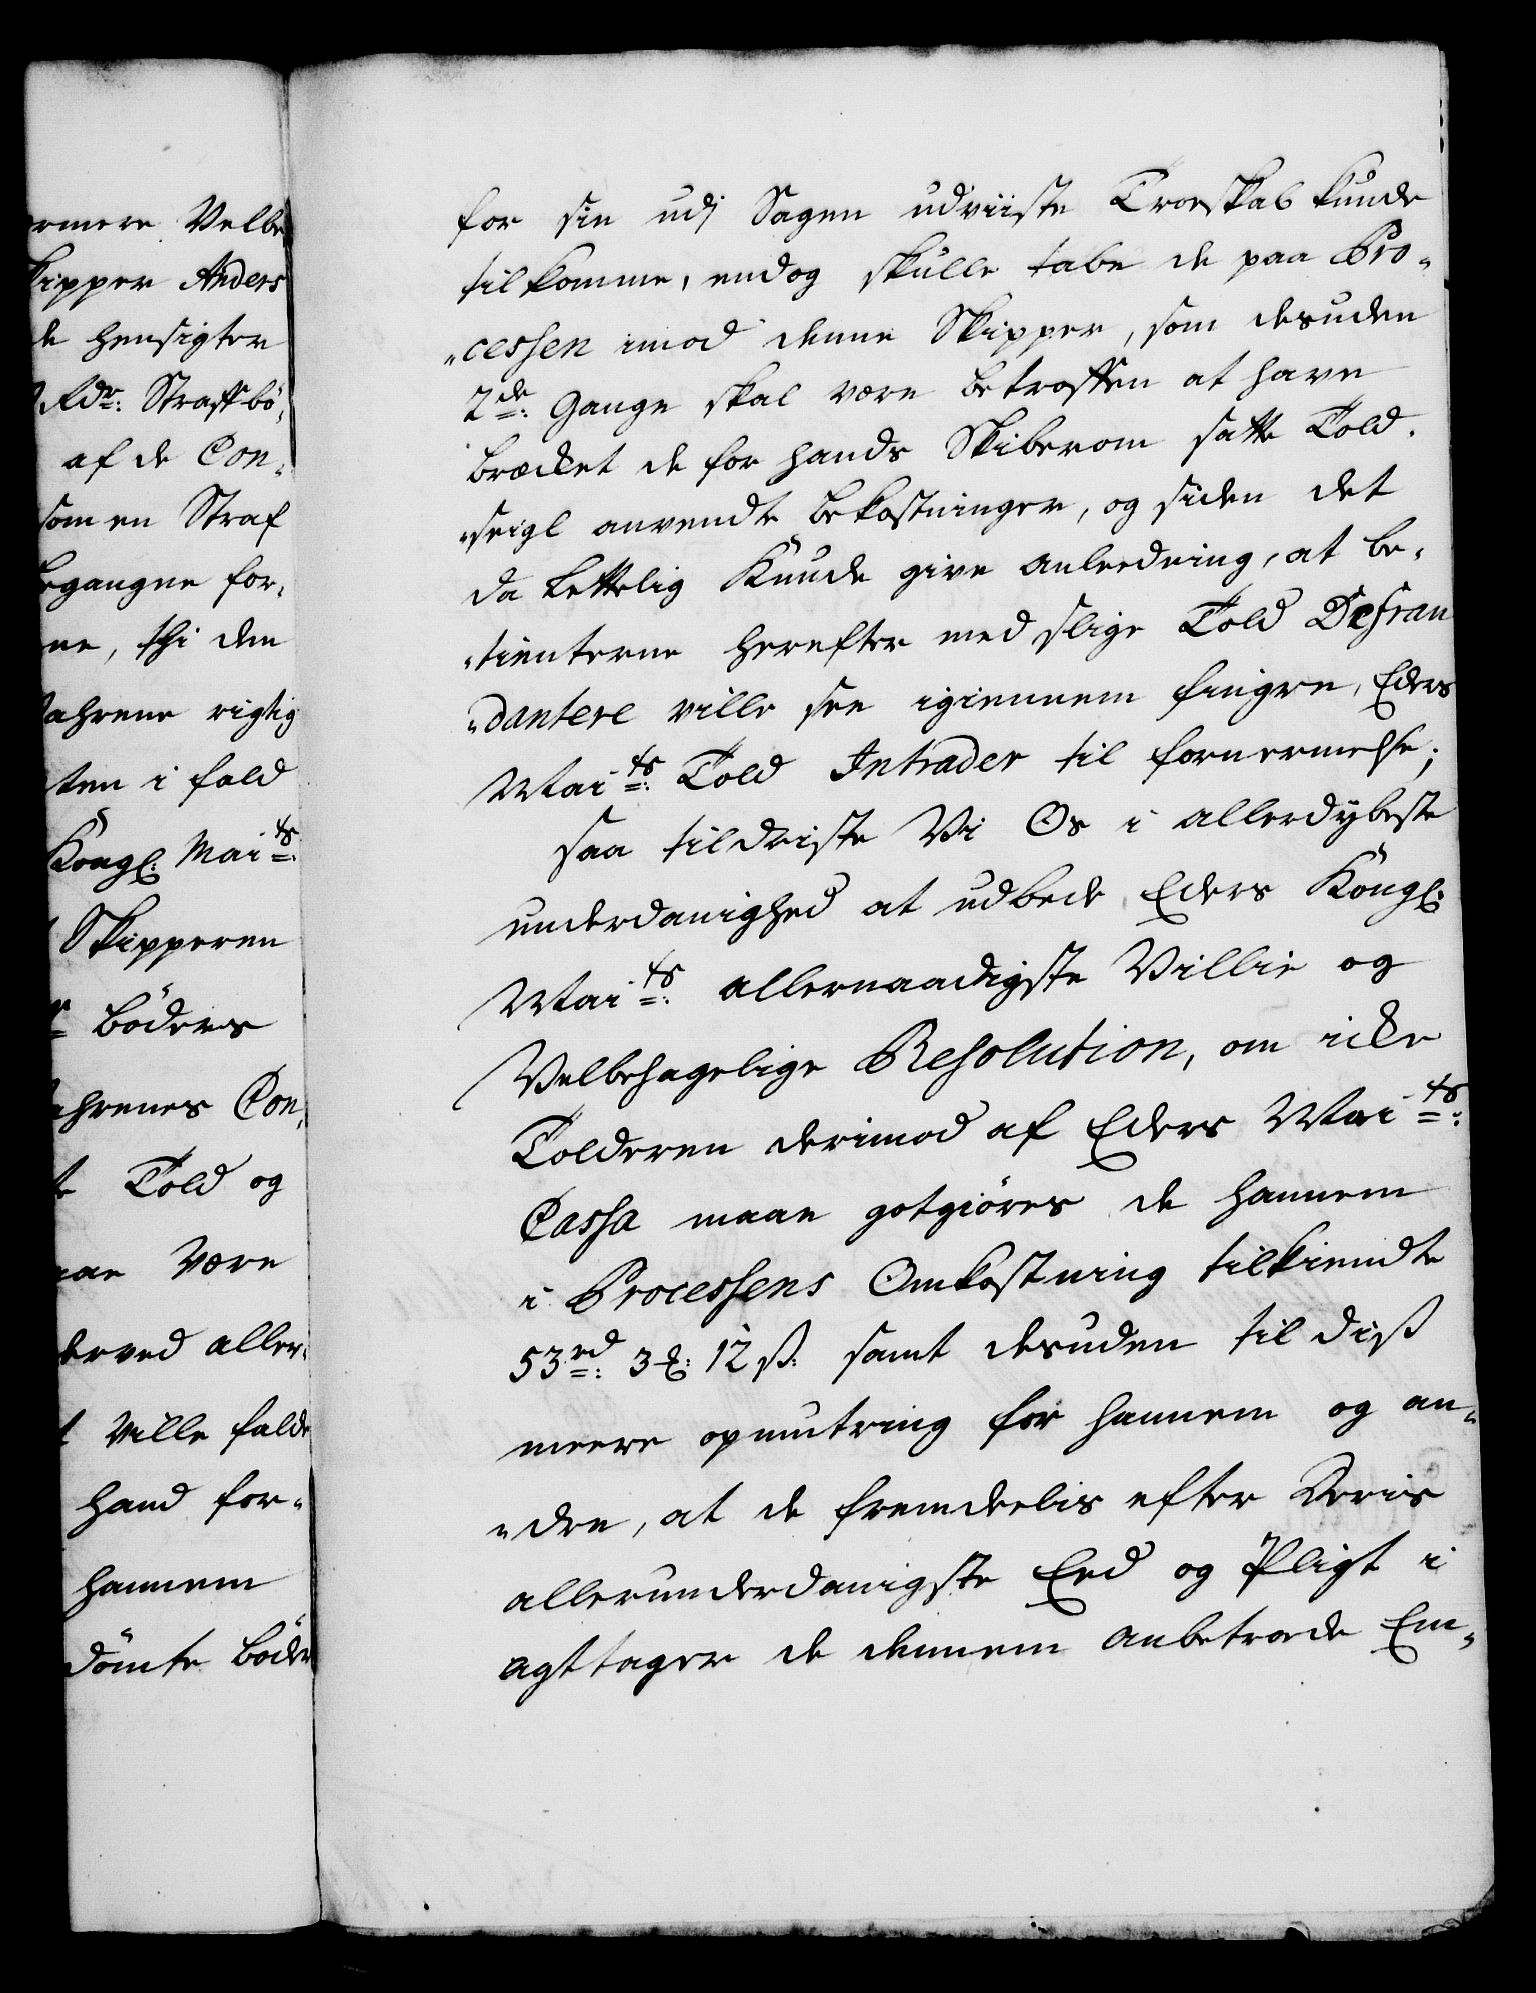 ermere Velbe
kipper Anders
de hensigter
Rdr: Straffbö,
af de Con,
som en Straf
begangne for,
ne, thi den
ahrene rigtig
ten i fald
Kongl: Maits:
Skipperen
böders
ahrenes Con,
te Told og
maae være
derved aller,
t ville falde
hand for,
hannem
dömte böder
for sin udj Sagen udviiste Troeskab kunde
tilkomme, endog skulle tabe de paa Pro,
„cessen imod denne Skipper, som desuden
2de: Gange skal være betroffen at have
bræcket de for hands Skiberom satte Told,
„seigl anvendte bekostninger, og siden det
da lettelig kunde give anleedning, at be,
„tienterne herefter med slige Told Defrau
„dantere ville see igiennem fingre, Eders
Maits: Told Intrader til fornermelse;
saa tildriste Vi Os i allerdybeste
underdanighed at udbede Eders Kongl:
Maits: allernaadigste Villie og
Velbehagelige Resolution, om icke
Tolderen derimod af Eders Maits:
Cassa maae gotgiöres de hannem
i Processens Omkostning tilkiendte
53rd: 3 ℔: 12 ß: samt desuden til diß
meere opmuntring for hannem og an,
„dre, at de fremdeelis efter Deris
allerunderdanigste Eed og Pligt i
agttager de dennem anbetroede Em,